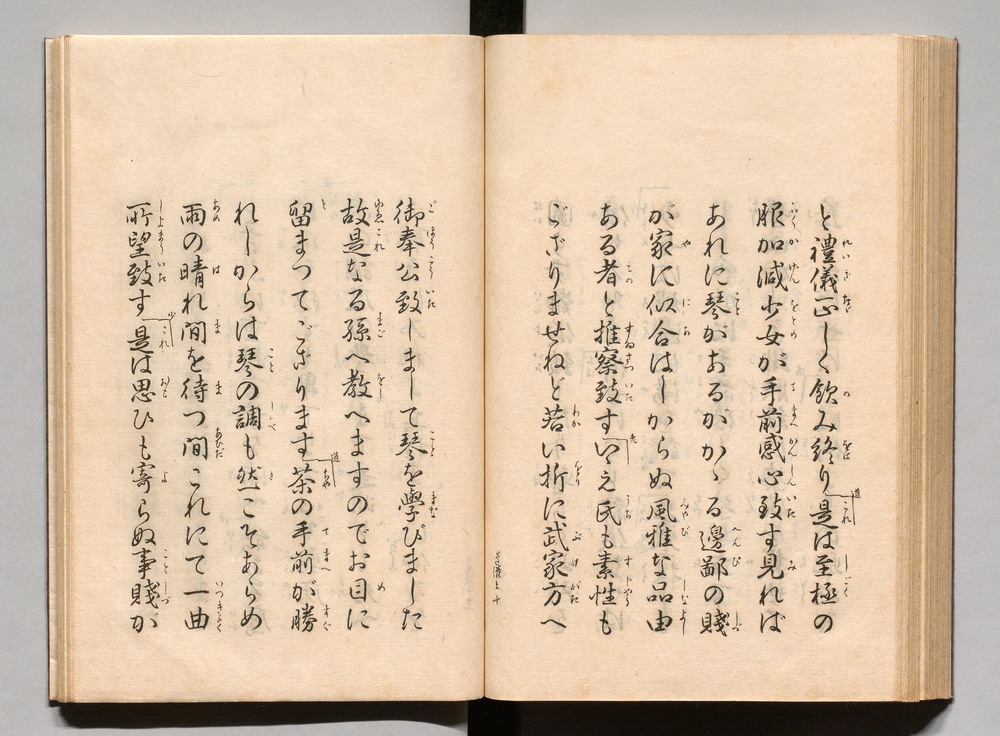 と禮儀正しく飲み終り是は至極の
服加減少女が手前感心致す見れば
あれに琴があるがかゝる邊鄙の賤
が家に似合はしからぬ風雅な品由
ある者と推察致すいえ氏も素性も
ござりませねど若い折に武家方へ
御奉公致しまして琴を學びました
故是なる孫へ教へますのでお目に
留まつてござります茶の手前が勝
れしからは琴の調も然こそあらめ
雨の晴れ間を待つ間これにて一曲
所望致す是は思ひも寄らぬ事賤が